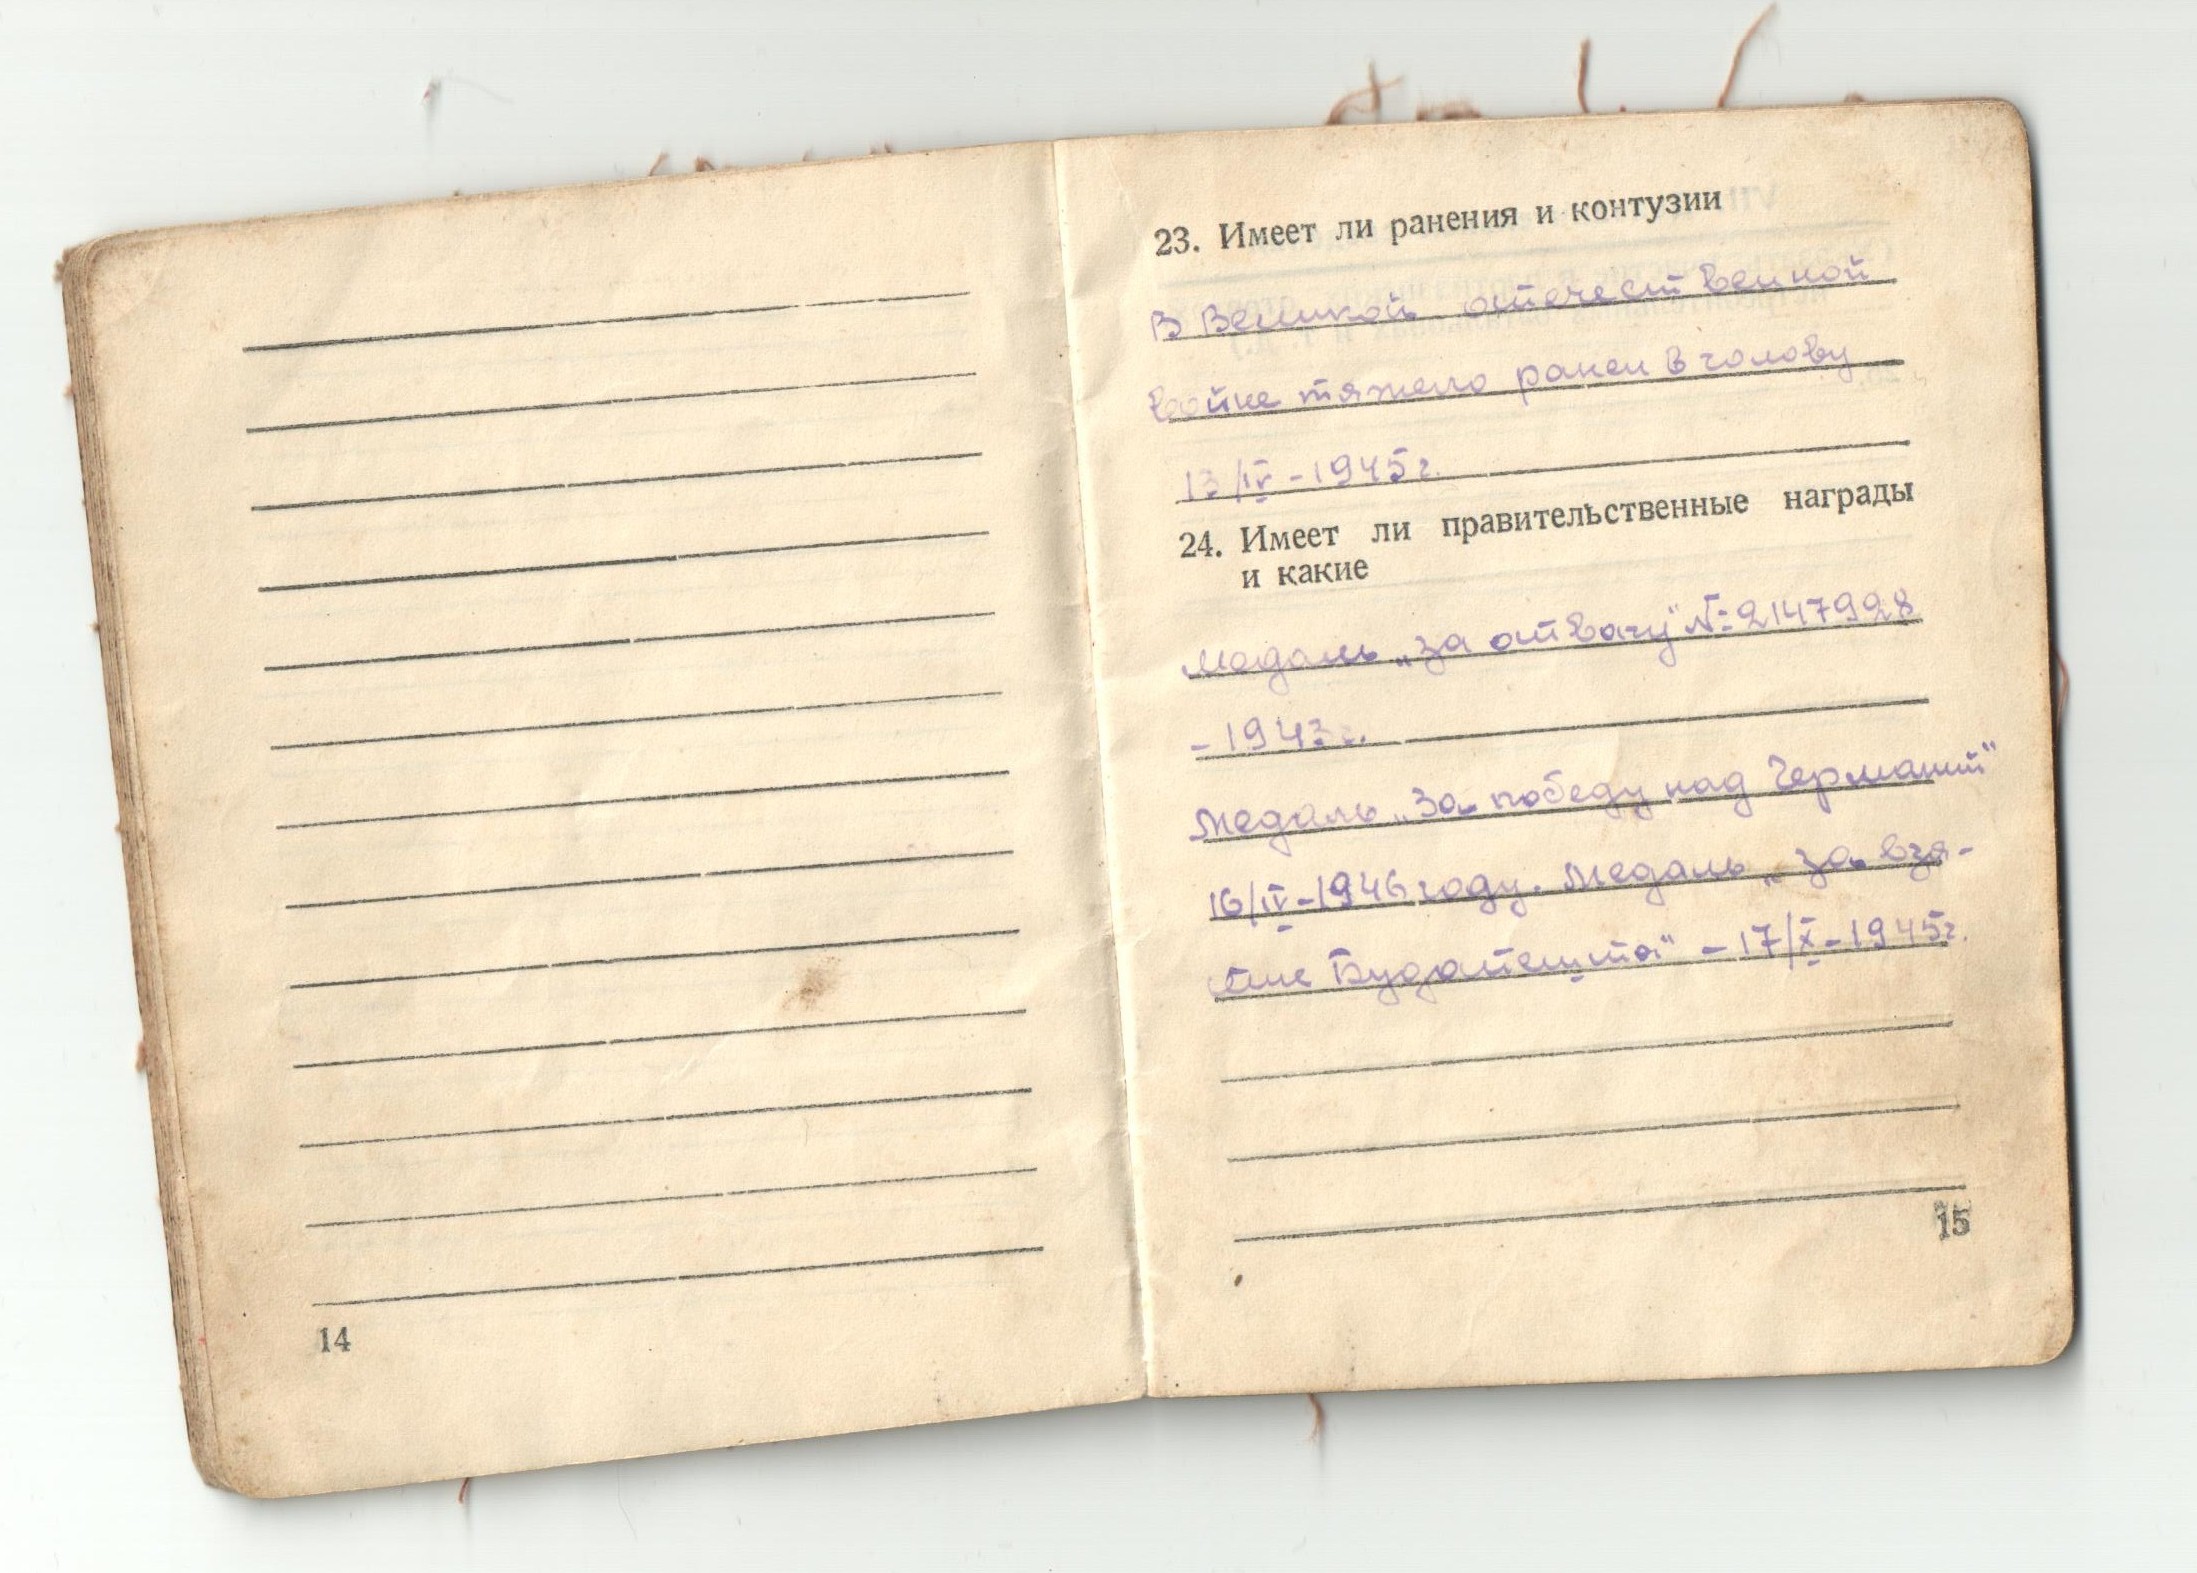 14
23. Имеет ли ранения и контузии
В Великой отечественной
войне тяжело ранен в голову
13/IV - 1945 г.
24. Имеет ли правительственные награды
и какие
медаль „за отвагу" № 2147928
- 1943 г.
медаль „За победу над Германий"
16/IV - 1946 году. медаль „за взя-
тие Будапешта" - 17/X - 1945 г.
15